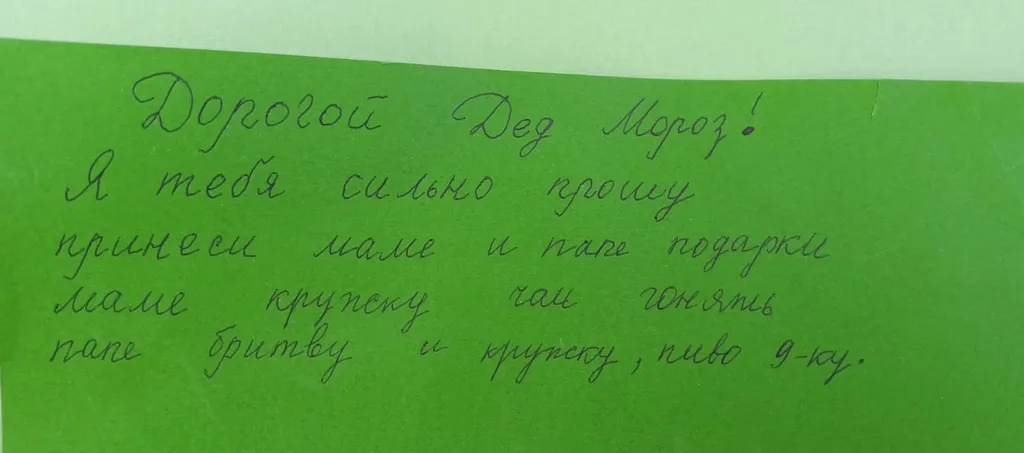 Дорогой Дед Мороз!
Я тебя сильно прошу
принеси маме и папе подарки
маме кружку чаи гонять
папе бритву и кружку, пиво 9-ку.